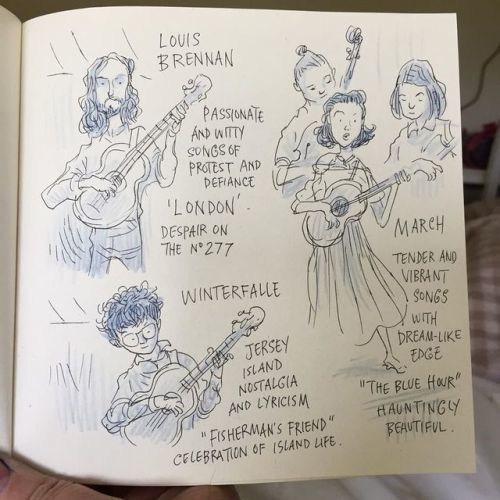 LOUIS
BRENNAN
PASSIONATE
AND WITTY
SONGS OF
PROTEST AND
DEFIANCE
'LONDON'.
DESPAIR ON
THE Nº 277
WINTERFALLE
JERSEY
ISLAND
NOSTALGIA
AND LYRICISM
"FISHERMAN'S FRIEND"
CELEBRATION OF ISLAND LIFE.
MARCH
TENDER AND
VIBRANT
SONGS
WITH
DREAM-LIKE
EDGE
"THE BLUE HOUR"
HAUNTINGLY
BEAUTIFUL.